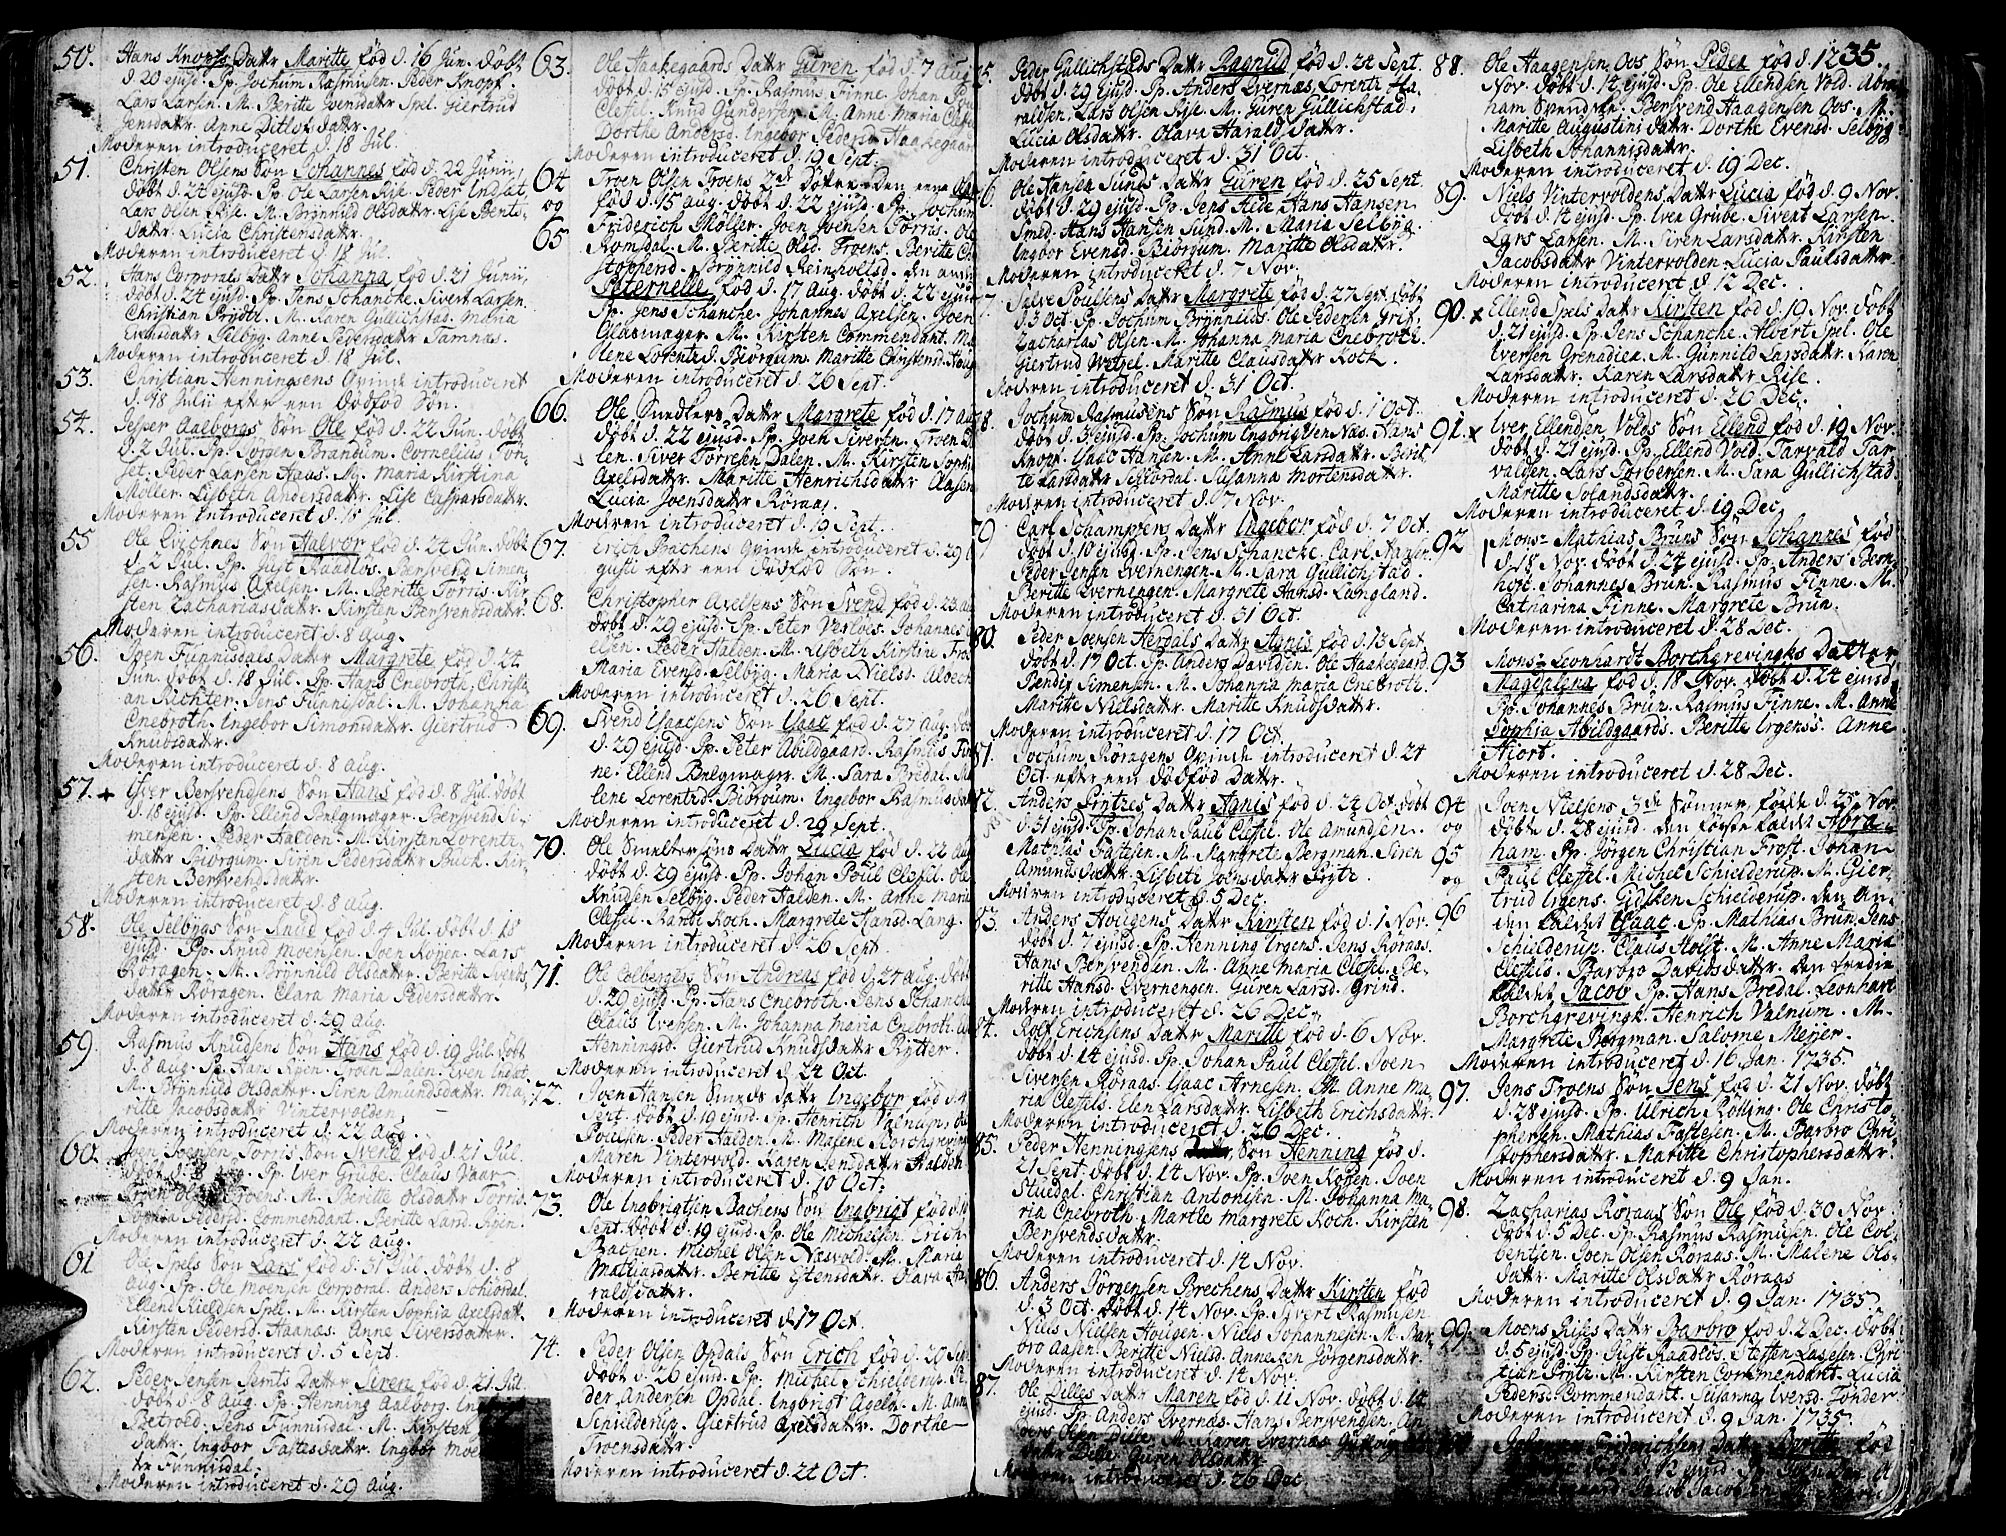 50. Hans Knopfs Datr Maritte fød d. 16 Jun. døbt
d. 20 ejusd. Sp. Jochum Rasmusen. Peder Knopf.
Lars Larsen. M. Beritte Svensdatr Spel. Giertrud
Jensdatr. Anne Ditlofsdatr.
Moderen introduceret d. 18 Jul.
51. Christen Olsens Søn Johannes fød d. 22 Junii,
døbt d. 24 ejusd. Sp. Ole Larsen Rise. Peder Indset.
Lars Olsen Rise. M. Brynnild Olsdatr. Lise Bents-
datr. Lucia Christensdatr.
Moderen introduceret d. 18 Jul.
52. Hans Corporals Datr Johanna fød d. 21 Junii,
døbt d. 24 ejusd. Sp. Jens Schancke. Sivert Larsen.
Christian Prydtz. M. Karen Gullichstad. Maria
Evensdatr Selbyg. Anne Pedersdatr Tamnas.
Moderen introduceret d. 18 Jul.
53. Christian Henningsens Qvinde introduceret
d. 18 Julii efter een dødfød Søn.
54. Jesper Aalborgs Søn Ole fød d. 22 Jun. døbt
d. 2 Jul. Sp. Jørgen Brandum. Cornelius Ton-
set. Peder Larsen Haas. M. Maria Kirstina
Møller. Lisbeth Andersdatr. Lise Casparsdatr.
Moderen introduceret d. 18 Jul.
55 Ole Qvichnes Søn Halvor fød d. 24 Jun. døbt
d. 2 Jul. Sp. Just Raadlos. Bersvend Simen-
sen. Rasmus Axelsen. M. Beritte Torris. Kir
sten Zachariasdatr. Kirsten Bersvendsdatr.
Moderen introduceret d. 8 Aug.
56. Joen Funnisdals Datter Margrete fød d. 24
Jun. døbt d. 18 Jul. Sp. Hans Cnebroth. Christi-
an Richter. Jens Funnisdal. M. Johanna
Cnebroth. Ingebor Simonsdatr. Giertrud
Knudsdatr.
Moderen introduceret d. 8 Aug.
57. + Iver Bersvendsens Søn Hans fød d. 8 Jul. døbt
d. 18 ejusd. Sp. Ellend Belgmager. Bersvend Si-
mensen. Peder Halden. M. Kirsten Lorentz-
datr Biørgum. Siren Pedersdatr Buck. Kir-
sten Bersvendsdatr.
Moderen introduceret d. 8 Aug.
58. Ole Selbygs Søn Knud fød d. 4 Jul. døbt d. 18
ejusd. Sp. Knud Moensen. Joen Kojen. Lars
Røragen. M. Brynnild Olsdatr. Berite Svends-
datr Røragen. Clara Maria Pedersdatr.
Moderen introduceret d. 29 Aug.
59 Rasmus Knudsens Søn Hans fød d. 19 Jul. døbt
d. 8 Aug. Sp. Hans Ryen. Troen Dalen. Even Indset.
M. Brynnild Olsdatr. Siren Amundsdatr. Ma-
ritte Jacobsdatr Vintervolden.
Moderen introduceret d. 22 Aug.
60. Joen Joensen Torris Søn Svend fød d. 21 Jul.
døbt d. Aug. Sp. Iver Grube. Claus Vaar.
Troen Olsen Troens. M. Beritte Olsdatr Torris.
Sophia Pedersd. Commendant. Beritte Larsd. Ryen.
Moderen introduceret d. 22 Aug.
61 Ole Spels Søn Lars fød d. 31 Jul. døbt d. 8
Aug. Sp. Ole Moensen Corporal. Anders Schiordal.
Ellend Kieldsen Spel. M. Kirsten Sophia Axelsdatr.
Kirsten Pedersd. Haanæs. Anne Siversdatr.
Moderen introduceret d. 5 Sept.
62. Peder Jensen Semts Datter Siren fød d. 21 Jul.
døbt d. 8 Aug. Sp. Henning Aalborg.
Betvold. Jens Funnisdal. M. Kirsten
datr. Ingbor Fastesdatr. Ingbor Moe
Funnisdal.
Moderen introduceret d. 29 Aug.
63. Ole Haakegaards Datr Guren fød d. 7 Aug
døbt d. 15 ejusd. Sp. Rasmus Finne. Johan
Clefsel. Knud Gundersen. M. Anne Maria Clefs
Dorthe Andersd. Ingebor Pedersd. Haakegaar
Moderen introduceret d. 19 Sept.
64 og 65 Troen Olsen Troens 2de Døttre. Den eene
fød d. 15 Aug. døbt d. 22 ejusd. Sp. Jochum
Friderich Møller. Joen Joensen Torris. Ole
Romdal. M. Beritte Olsd. Troens. Beritte Chri
stophersd. Brynnild Reinholtsd. den anden
Peternelle fød d. 17 Aug. døbt d. 22 ejusd
Sp. Jens Schancke. Johannes Axelsen. Joen
Glasmager. M. Kirsten Commendant. Ma
lene Lorentzd. Biørgum. Maritte Christensd. Haug
Moderen introduceret d. 26 Sept.
66. Ole Snedkers Datr Margrete fød d. 17 Aug
døbt d. 22 ejusd. Sp. Joch Siversen. Troen Da
len. Siver Torresen Dalen. M. Kirsten Sophi
Axelsdatr. Maritte Henrichsdatr Clasen
Lucia Joensdatr Røraas.
Moderen introduceret d. 19 Sept.
67. Erich Bachens Qvinde introduceret d. 29
gusti efter een dødfød Søn.
68. Christopher Axelsens Søn Svend fød d. 23 Au
døbt d. 29 ejusd. Sp. Peter Vesloes. Johannes
elsen. Peder Halden. M. Lisbeth Kirstine Fro
Maria Evensd. Selbyg. Maria Nielsd. Alvech
Moderen introduceret d. 26 Sept.
69. Svend Isaacsens Søn Isaac fød d. 27 Aug. døb
d. 29 ejusd. Sp. Peter Abildgaard. Rasmus Fin
ne. Ellend Belgmager. M. Sara Bredal. Ma
lene Lorentzd. Biørgum. Ingebor Rasmusdat
Moderen introduceret d. 29 Sept.
70. Ole Smeltersens Datr Lucia fød d. 22 Aug
døbt d. 29 ejusd. Sp. Johan Poul Clefsel. Ole
Knudsen Selbyg. Peder Halden. M. Anne Maria
Clefsel. Randi Koch. Margrete Hansd. Lang.
Moderen introduceret d. 26 Sept
71. Ole Colbergers Søn Andreas fød d. 24 Aug. døbt
d. 29 ejusd. Sp. Hans Cnebroth. Jens Schancke
Claus Iversen. M. Johanna Maria Cnebroth.
Henningsd. Giertrud Knudsdatr Rytter.
Moderen introduceret d. 24 Oct.
72. Joen Hansen Smeds datr Ingebor fød d. 4
Sept. døbt d. 19 ejusd. Sp. Henrich Valnum.
Poulsen. Peder Halden. M. Malene Borchgreving
Maren Vintervold. Karen Jensdatr Halden.
Moderen introduceret d. 10 Oct.
73. Ole Ingbrigtsen Bachens Søn Ingbrigt fød d. 10
Sept. døbt d. 19 ejusd. Sp. Ole Michelsen. Erich
Bachen. Michel Olsen Næsvold. M. Maria
Mathiasdatr. Beritte Estensdatr. Olava Ha
raldsdatr.
Moderen introduceret d. 17 Oct.
74. Peder Olsen Opdals Søn Erich fød d. 20 Sept.
døbt d. 26 ejusd. Sp. Michel Schielderup. Pe
der Andersen Opdal. Ingbrigt Ageln. M. Anne
Schielderup. Giertrud Axelsdatr. Dorthe
Troensdatr.
Moderen introduceret d. 24 Oct.
75. Peder Gullichstads Datr Ragnild fød d. 24 Sept.
døbt d. 29 ejusd. Sp. Anders Evernæs. Lorentz Ha-
raldsen. Lars Olsen Rise. M. Guren Gullichstad.
Lucia Olsdatr. Olava Haraldsdatr.
Moderen introduceret d. 31 Oct.
6. Ole Hansen Sunds Datr Guren fød d. 25 Sept.
døbt d. 29 ejusd. Sp. Jens Aide. Hans Hansen
Smed. Hans Hansen Sund. M. Maria Selbyg.
Ingbor Evensd. Biørgum. Maritte Olsdatr.
Moderen introduceret d. 7 Nov.
7. Salve Poulsens Datr Margrete fød d. 27 Sept. døbt
d. 3 Oct. Sp. Jochum Brynnius. Ole Pedersen Grif.
Zacharias Olsen. M. Johanna Maria Cnebroth.
Giertrud Wetzel. Maritte Clausdatr Koch.
Moderen introduceret d. 31 Oct.
8. Jochum Rasmusens Søn Rasmus fød d. 1 Oct.
døbt d. 3 ejusd. Sp. Jochum Ingbrigtsen Næs. Hans
Knopf. Isaac Hansen. M. Anne Larsdatr. Berit
te Larsdatr Schiordal. Susanna Mortensdatr.
Moderen introduceret d. 7 Nov.
79 Carl Schampers Datr Ingebor fød d. 7 Oct.
døbt d. 10 ejusd. Sp. Jens Schancke. Carl Hagen.
Peder Jensen Evernengen. M. Sara Gullichstad.
Beritte Evernengen. Margrete Hansd. Langland.
Moderen introduceret d. 31 Oct.
80. Peder Joensen Herdals Datr Agnis fød d. 13 Sept
døbt d. 17 Oct. Sp. Anders Davidsen. Ole Haakegaard.
Bendix Simensen. M. Johanna Maria Cnebroth.
Maritte Nielsdatr. Maritte Knudsdatr.
Moderen introduceret d. 17 Oct.
81. Jochum Røragens Qvinde introduceret d. 24
Oct. efter een dødfød Datr.
82. Anders Prytzes Datr Agnis fød d. 24 Oct. døbt
d. 31 ejusd. Sp. Johan Paul Clefsel. Ole Amundsen.
Mathias Fastesen. M. Margrete Bergman. Siren
Amundsdatr. Lisbeth Joensdatr Prytz.
Moderen introduceret d. 5 Dec.
83. Anders Hougens Datr Kirsten fød d. 1 Nov.
døbt d. 7 ejusd. Sp. Henning Irgens. Jens Røraas.
Hans Bersvendsen. M. Anne Maria Clefsel. Be-
ritte Hansd. Evernengen. Guren Larsd. Grind.
Moderen introduceret d. 26 Dec.
84. Rolf Erichsens Datr Maritte fød d. 6 Nov.
døbt d. 14 ejusd. Sp. Johan Paul Clefsel. Joen
Siversen Røraas. Isaac Arnesen. M. Anne Ma-
ria Clefsels. Elen Larsdatr. Lisbeth Erichsdatr.
Moderen introduceret d. 26 Dec.
85. Peder Henningsens Søn Henning fød d.
21 Sept. døbt d. 14 Nov. Sp. Joen Kojen. Joen
Stuedal. Christian Antonisen. M. Johanna Ma-
ria Cnebroth. Marthe Margrete Koch. Kirsten
Bersvendsdatr.
Moderen introduceret d. 14 Nov.
86. Anders Jørgensen Brechens Datr Kirsten fød
d. 3 Oct. døbt d. 14 Nov. Sp. Sivert Rasmusen
Niels Nielsen Hougen. Niels Johannesen. M. Bar-
bro Aasen. Beritte Nielsd. Anne Jørgensdatr.
Moderen introduceret d. 14 Nov.
87. Ole Dilles Datr Maren fød d. 11 Nov. døbt d. 14
ejusd. Sp. Anders Evernæs. Hans Bersvengen. An
ders Olsen Dille. M. Karen Evernæs.
Dille. Guren Olsdatr.
Moderen introduceret d. 26 Dec.
1735.
88. Ole Haagensen Oos Søn Peder fød d. 12
Nov. døbt d. 14 ejusd. Sp. Ole Ellendsen Vold. Abra-
ham Svendsen. Bersvend Haagensen Oos. M.
Maritte Augustinsdatr. Dorthe Evensd. Selbyg
Lisbeth Johannisdatr.
Moderen introduceret d. 19 Dec.
89. Niels Vintervoldens Datr Lucia fød d. 9 Nov.
døbt d. 14 ejusd. Sp. Iver Grube. Sivert Larsen.
Lars Larsen. M. Siren Larsdatr. Kirsten
Jacobsdatr Vintervolden. Lucia Paulsdatr.
Moderen introduceret d. 12 Dec.
90. x Ellend Spels Datr Kirsten fød d. 19 Nov. døbt
d. 21 ejusd. Sp. Jens Schancke. Albert Spel. Ole
Iversen Grenadier. M. Gunnild Larsdatr. Karen
Larsdatr. Karen Larsdatr Rise.
Moderen introduceret d. 26 Dec.
91. x Iver Ellendsen Volds Søn Ellend fød d. 19 Nov.
døbt d. 21 ejusd. Sp. Ellend Vold. Tarvald Tar-
valdsen. Lars Torbersen. M. Sara Gullichstad.
Maritte Solandsdatr.
Moderen introduceret d. 19 Dec.
92 Mons: Mathias Bruns Søn Johannes fød
d. 18 Nov. døbt d. 24 ejusd. Sp. Anders Bern-
hoft. Johannes Brun. Rasmus Finne. M.
Catharina Finne. Margrete Brun.
Moderen introduceret d. 28 Dec.
93 Mons: Leonhardt Borchgrevingks Datter
Magdalena fød d. 18 Nov. døbt d. 24 ejusd.
Sp. Johannes Brun. Rasmus Finne. M. Anne
Sophia Abildgaards. Beritte Irgens's. Anne
Hiort.
Moderen introduceret d. 28 Dec.
94 og 95 og 96 Joen Nielsens 3de Sønner, fødde d. 25 Nov.
døbte d. 28 ejusd. den første kaldet Abra-
ham. Sp. Jørgen Christian Frost. Johan
Paul Clefsel. Michel Schielderup. M. Gier-
trud Irgens. Gidsken Schielderup. den an-
den kaldet Isaac. Sp. Mathias Brun. Jens
Schielderup. Claus Holst. M. Anne Maria
Clefsels. Barbro Davidsdatr. den tredie
kaldet Jacob. Sp. Hans Bredal. Leonhart
Borchgrevingk. Henrich Valnum. M.
Margrete Borgman. Salome Meyer.
Moderen introduceret d. 16 Jan. 1735
97. Jens Troens Søn Jens fød d. 21 Nov. døbt
d. 28 ejusd. Sp. Ulrich Rølling. Ole Christo-
phersen. Mathias Fastesen. M. Barbro Chri-
stophersdatr. Maritte Christophersdatr.
Moderen introduceret d. 9 Jan.
98. Zacharias Røraas Søn Ole fød d. 30 Nov.
døbt d. 5 Dec. Sp. Rasmus Rasmusen. Ole Col-
bentsen. Joen Olsen Røraas. M. Malene Ols-
datr. Maritte Olsdatr Røraas
Moderen introduceret d. 9 Jan. 1735.
99. Moens Rises Datr Barbro fød d. 2 Dec. døbt
d. 5 ejusd. Sp. Just Raadlos. Steffen Lassesen. Chri-
stian Prytz. M. Kirsten Commendant. Lucia
Pedersd. Commendant. Susanna Iversd. Tønder
Moderen introduceret d. 9 Jan. 1735.
Johannes Friderichsens Datr Beritte fød
d. 12 ejusd. Sp.
Jacob Jacobsen. M.